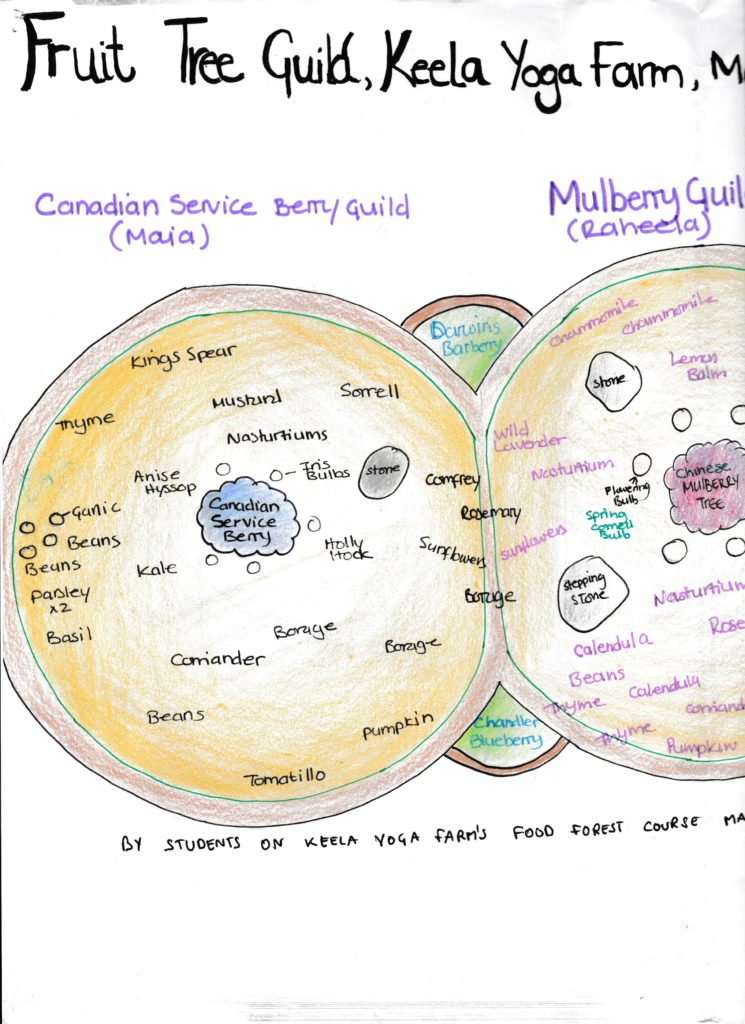 Fruit Tree Guild, Keela Yoga Farm, Ma
Canadian Service Berry Guild
(Maia)
Mulberry Guil
(Raheela)
Darwins
Barberry
Kings Spear
Thyme
Mustard
Sorrell
Nasturtiums
Anise
Hyssop
Iris
Bulbs
Stone
Canadian
Service
Berry
Ganic
Beans
Beans
Parsley
x2
Basil
Kale
Holly
Hock
Borage
Borage
Coriander
Beans
Pumpkin
Tomatillo
Comfrey
Rosemary
Sunflowers
Borage
Chandler
Blueberry
Chammomile
Chammomile
Stone
Lemon
Balm
Wild
Lavender
Nasturtium
Flowering
Bulb
Spring
Bulb
Chinese
MULBERRY
TREE
Sunflowers
Stepping
Stone
Nasturtium
Rose
Calendula
Beans
Thyme
Calendula
Coriand
Thyme
Pumpkin
BY STUDENTS ON KEELA YOGA FARM'S FOOD FOREST COURSE MA